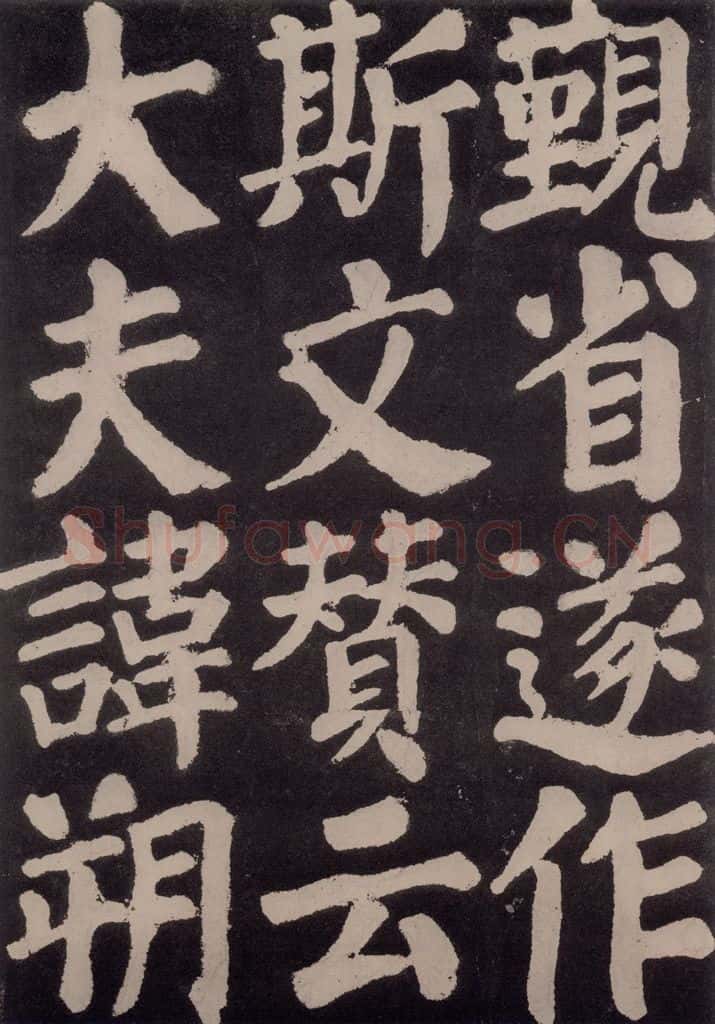 覲省遂作
斯文賛云
大夫諱朔
Shufawang.CN